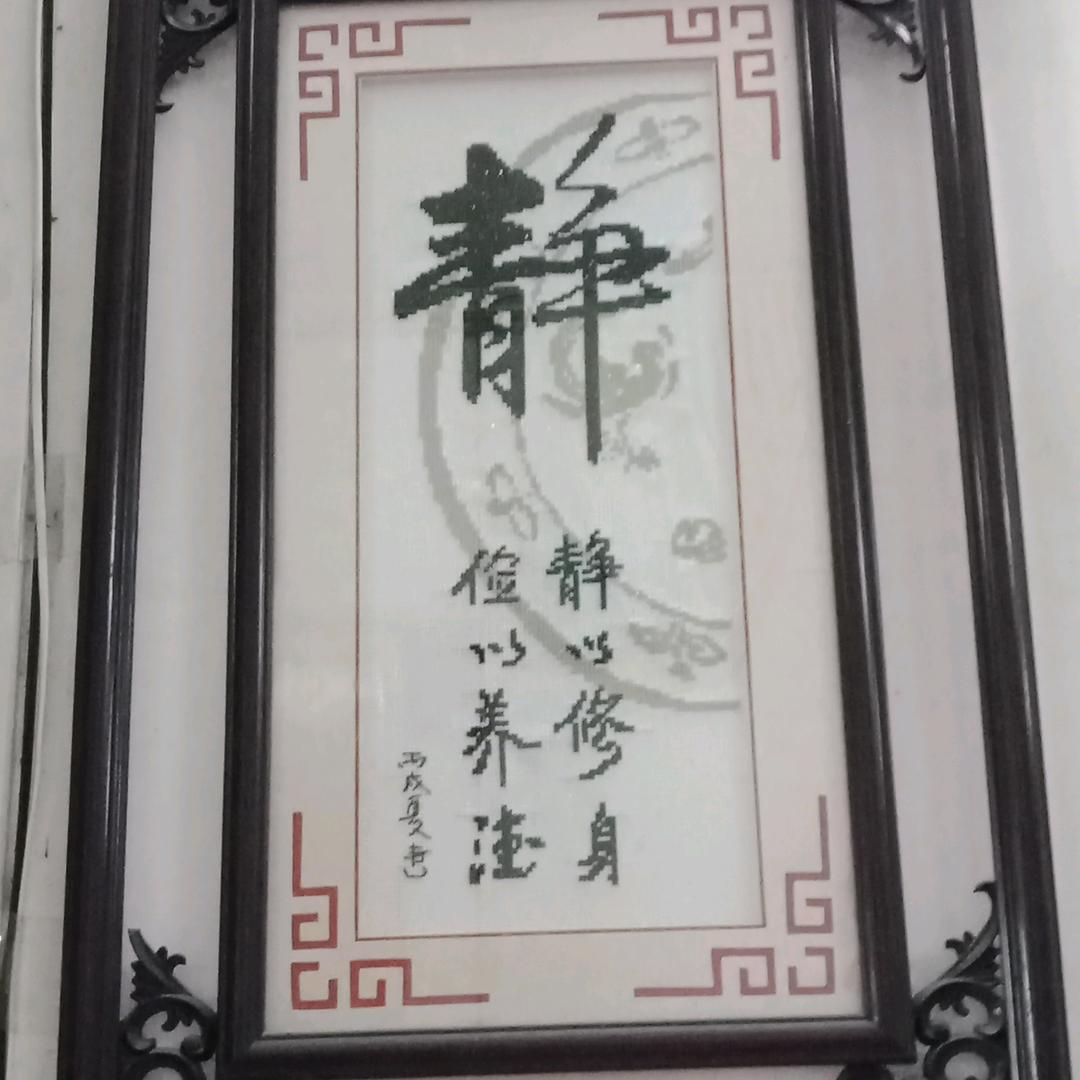 静
静以修身
俭以养德
丙戌夏书